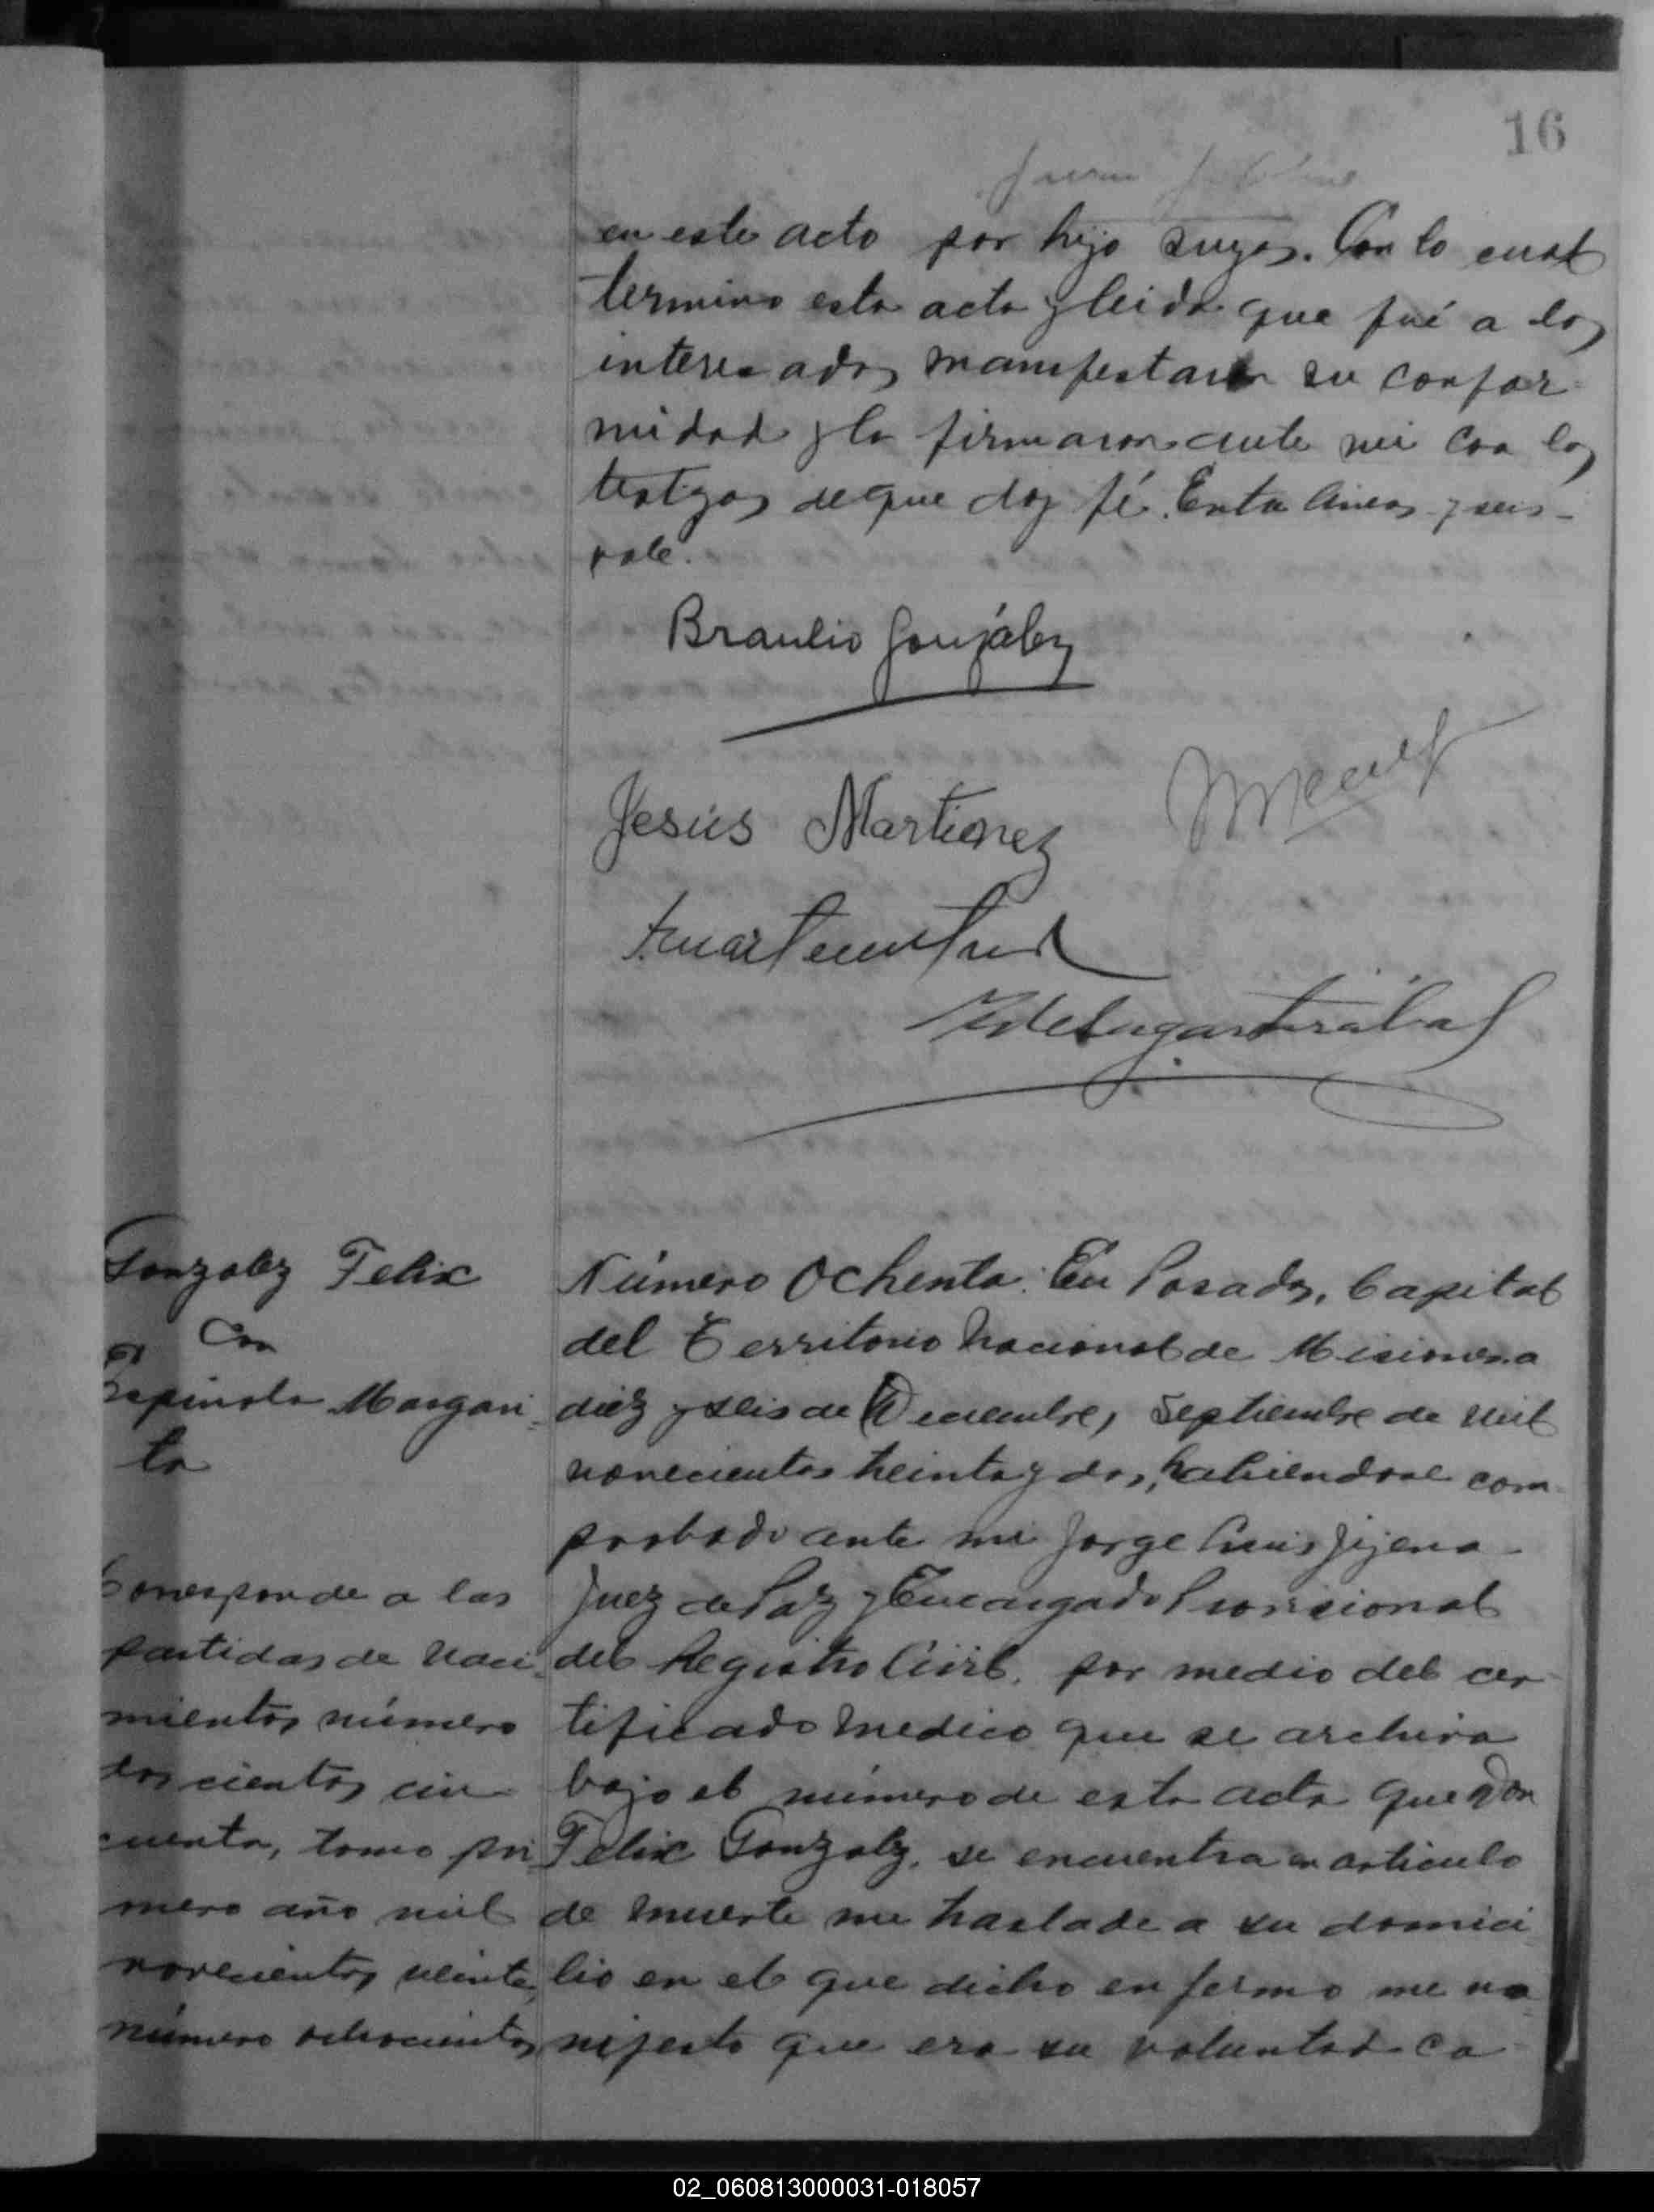 16
en este acto por hijo suyos. Con lo cual
termino esta acta y leida que fué a los
interesados manifestaron su confor
midad y la firmaron ante mi con los
testgos de que doy fé. Entre lineas - y seis -
vale.
Braulio González
Jesús Martinez
Gonzalez Felix
Con
Espinola Margari
ta
Corresponde a las
partidas de naci
mientos número
doscientos cin
cuenta, tomo pri
mero año mil
novecientos veinte,
número ochocientos
Número Ochenta: En Posadas, Capital
del Territorio Nacional de Misiones a
diez y seis de (Deciembre) Septiembre de mil
novecientos treinta y dos, habiendose com
probado ante mi Jorge Luis Jijena
Juez de Paz y Encargado Provisional
del Registro Civil, por medio del cer
tificado medico que se archiva
bajo el número de esta acta que Don
Felix Gonzalez, se encuentra en articulo
de muerte me traslade a su domici
lio en el que dicho enfermo me ma
nifesto que era su voluntad ca
02_060813000031-018057